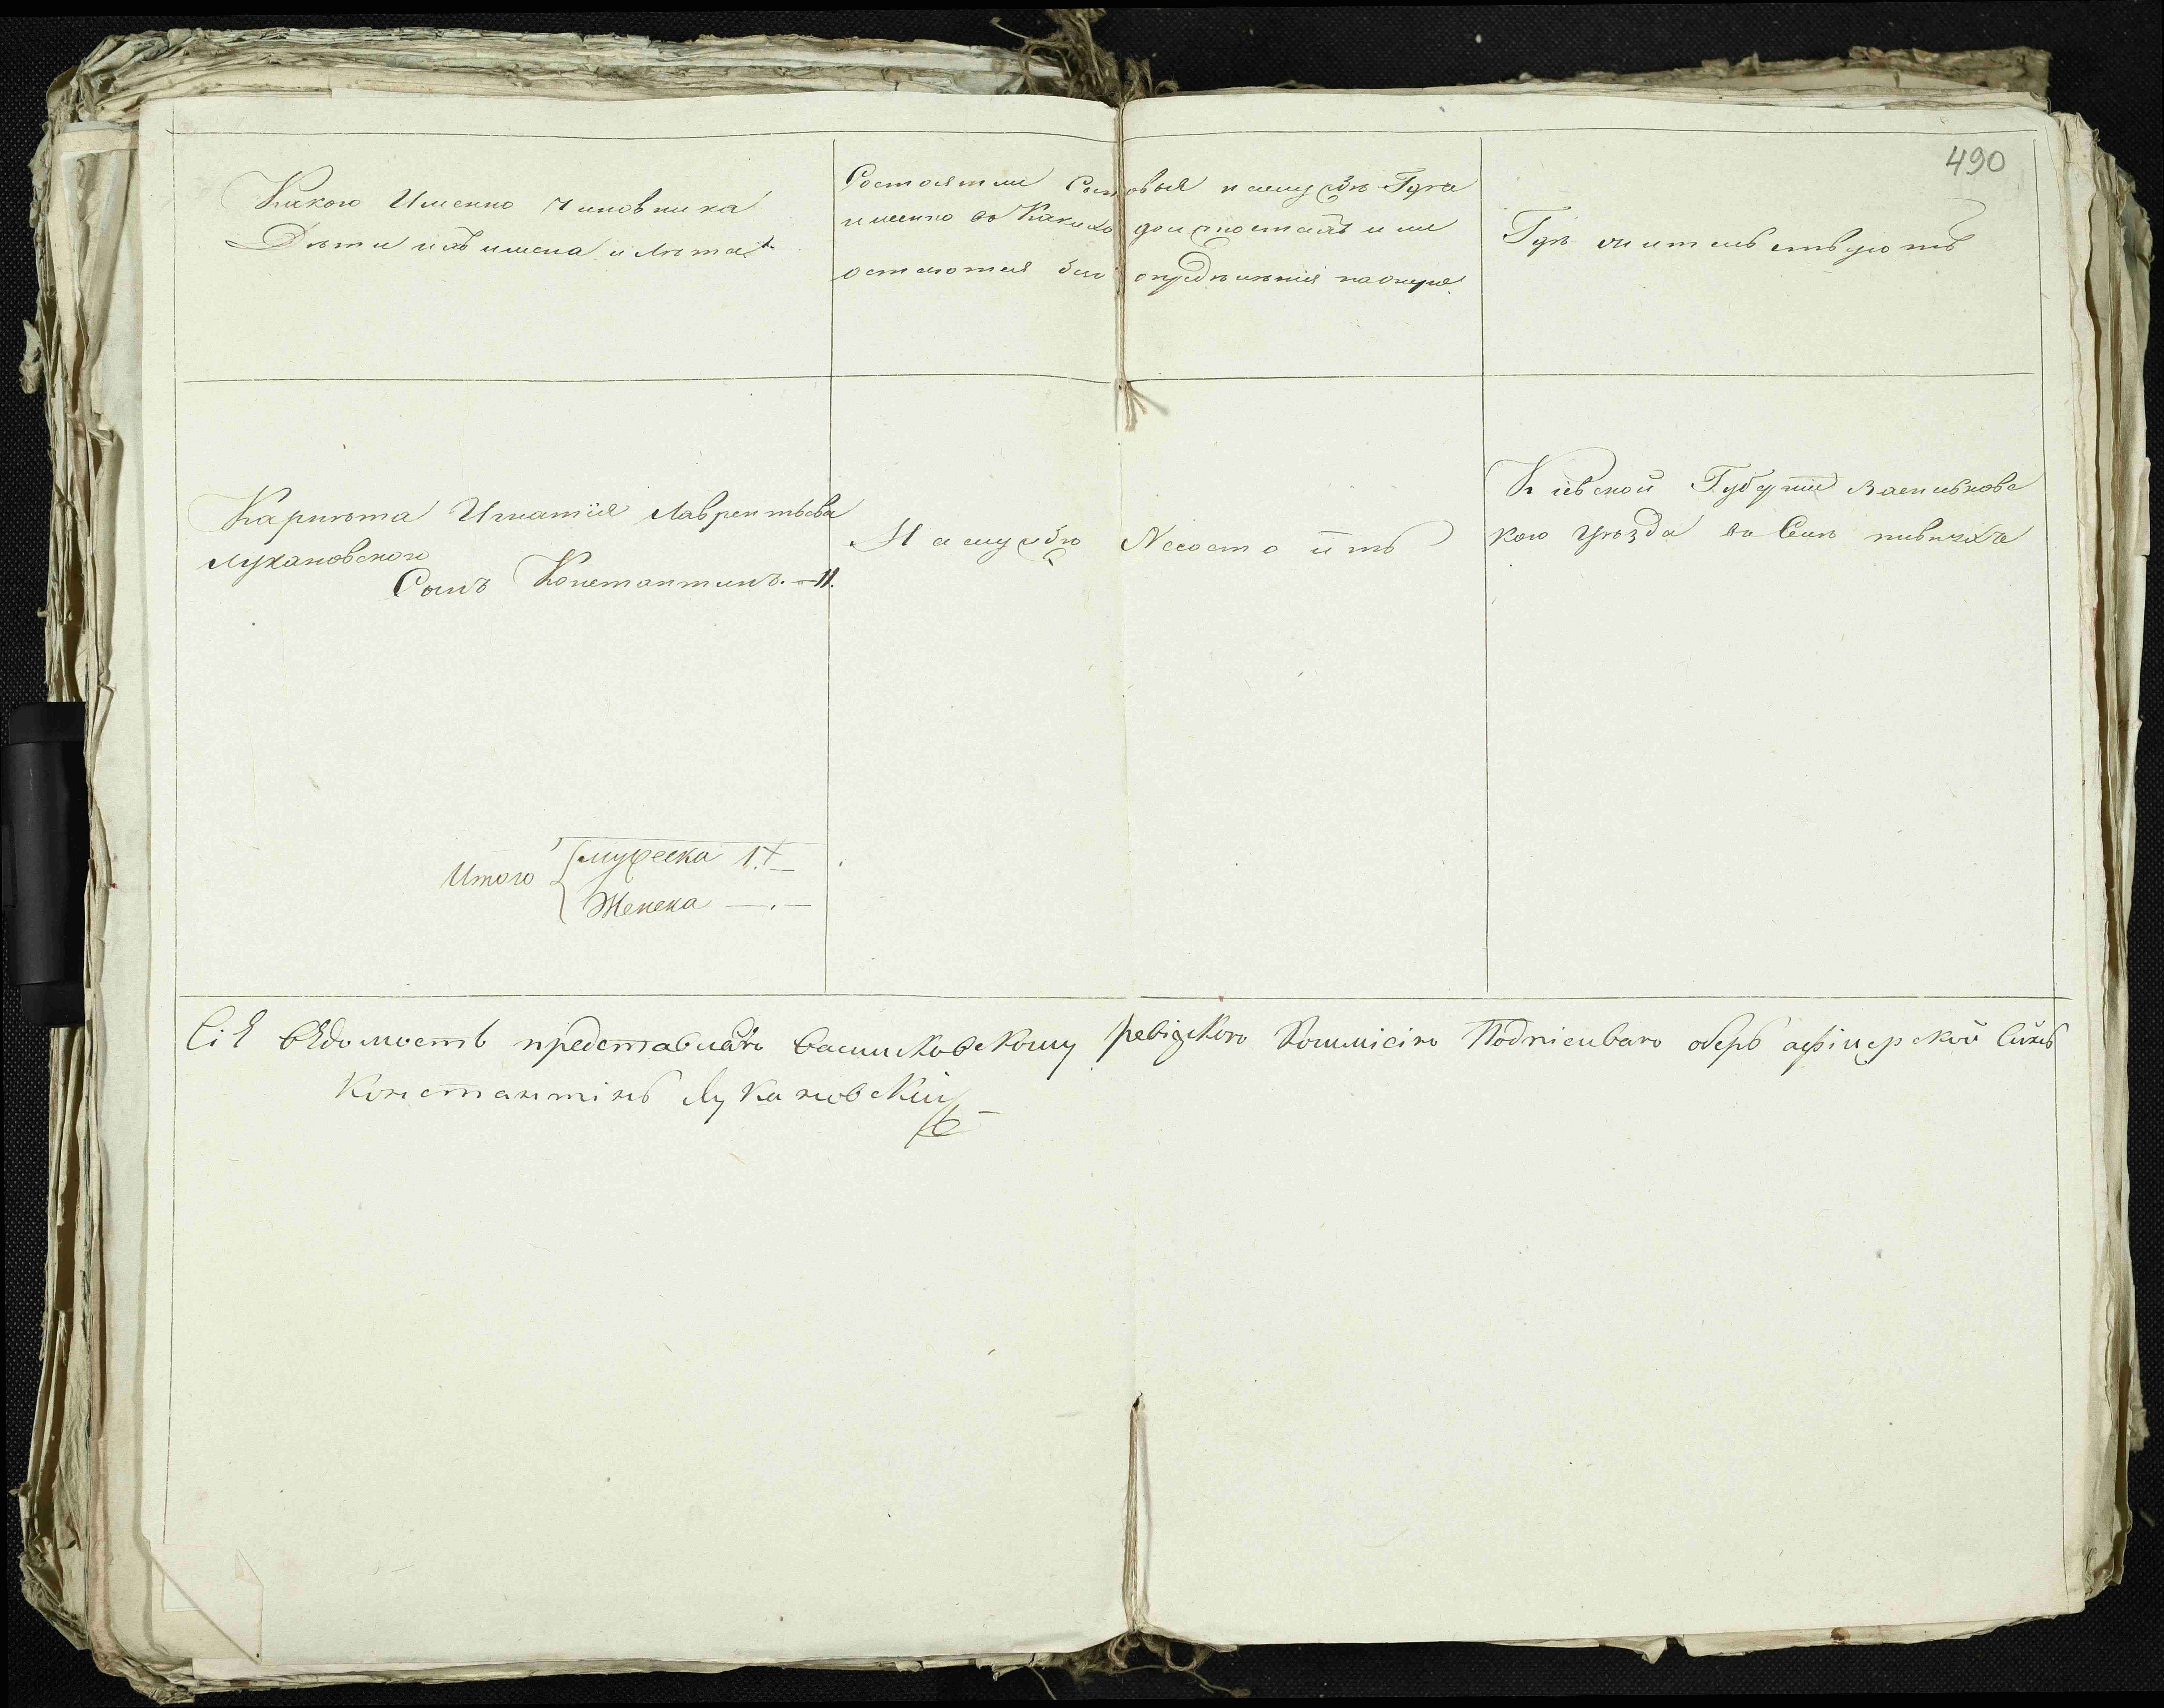 490
Какого Именно чиновника
Дѣти ихъ имена и лѣта
Состоятли Сыновья наслужбѣ Гдѣ
именно во Какихъ должностяхъ или
остаются безъ опредѣленія
Гдѣ жительствуютъ
Карнѣта Игнатія Лаврентьева
Лукановского
Сынъ Константинъ. — 11.
Наслужбѣ Несостоитъ
Кіевской Губерніи Васильковс
кого уѣзда во Селѣ
Итого { мужеска 1. —
Женска — . —
Сіѣ вѣдомость представлено Васильковскому ревизкого Коммисіго Подписываго оберъ афіцерской Синъ
Константінъ Лукановскій